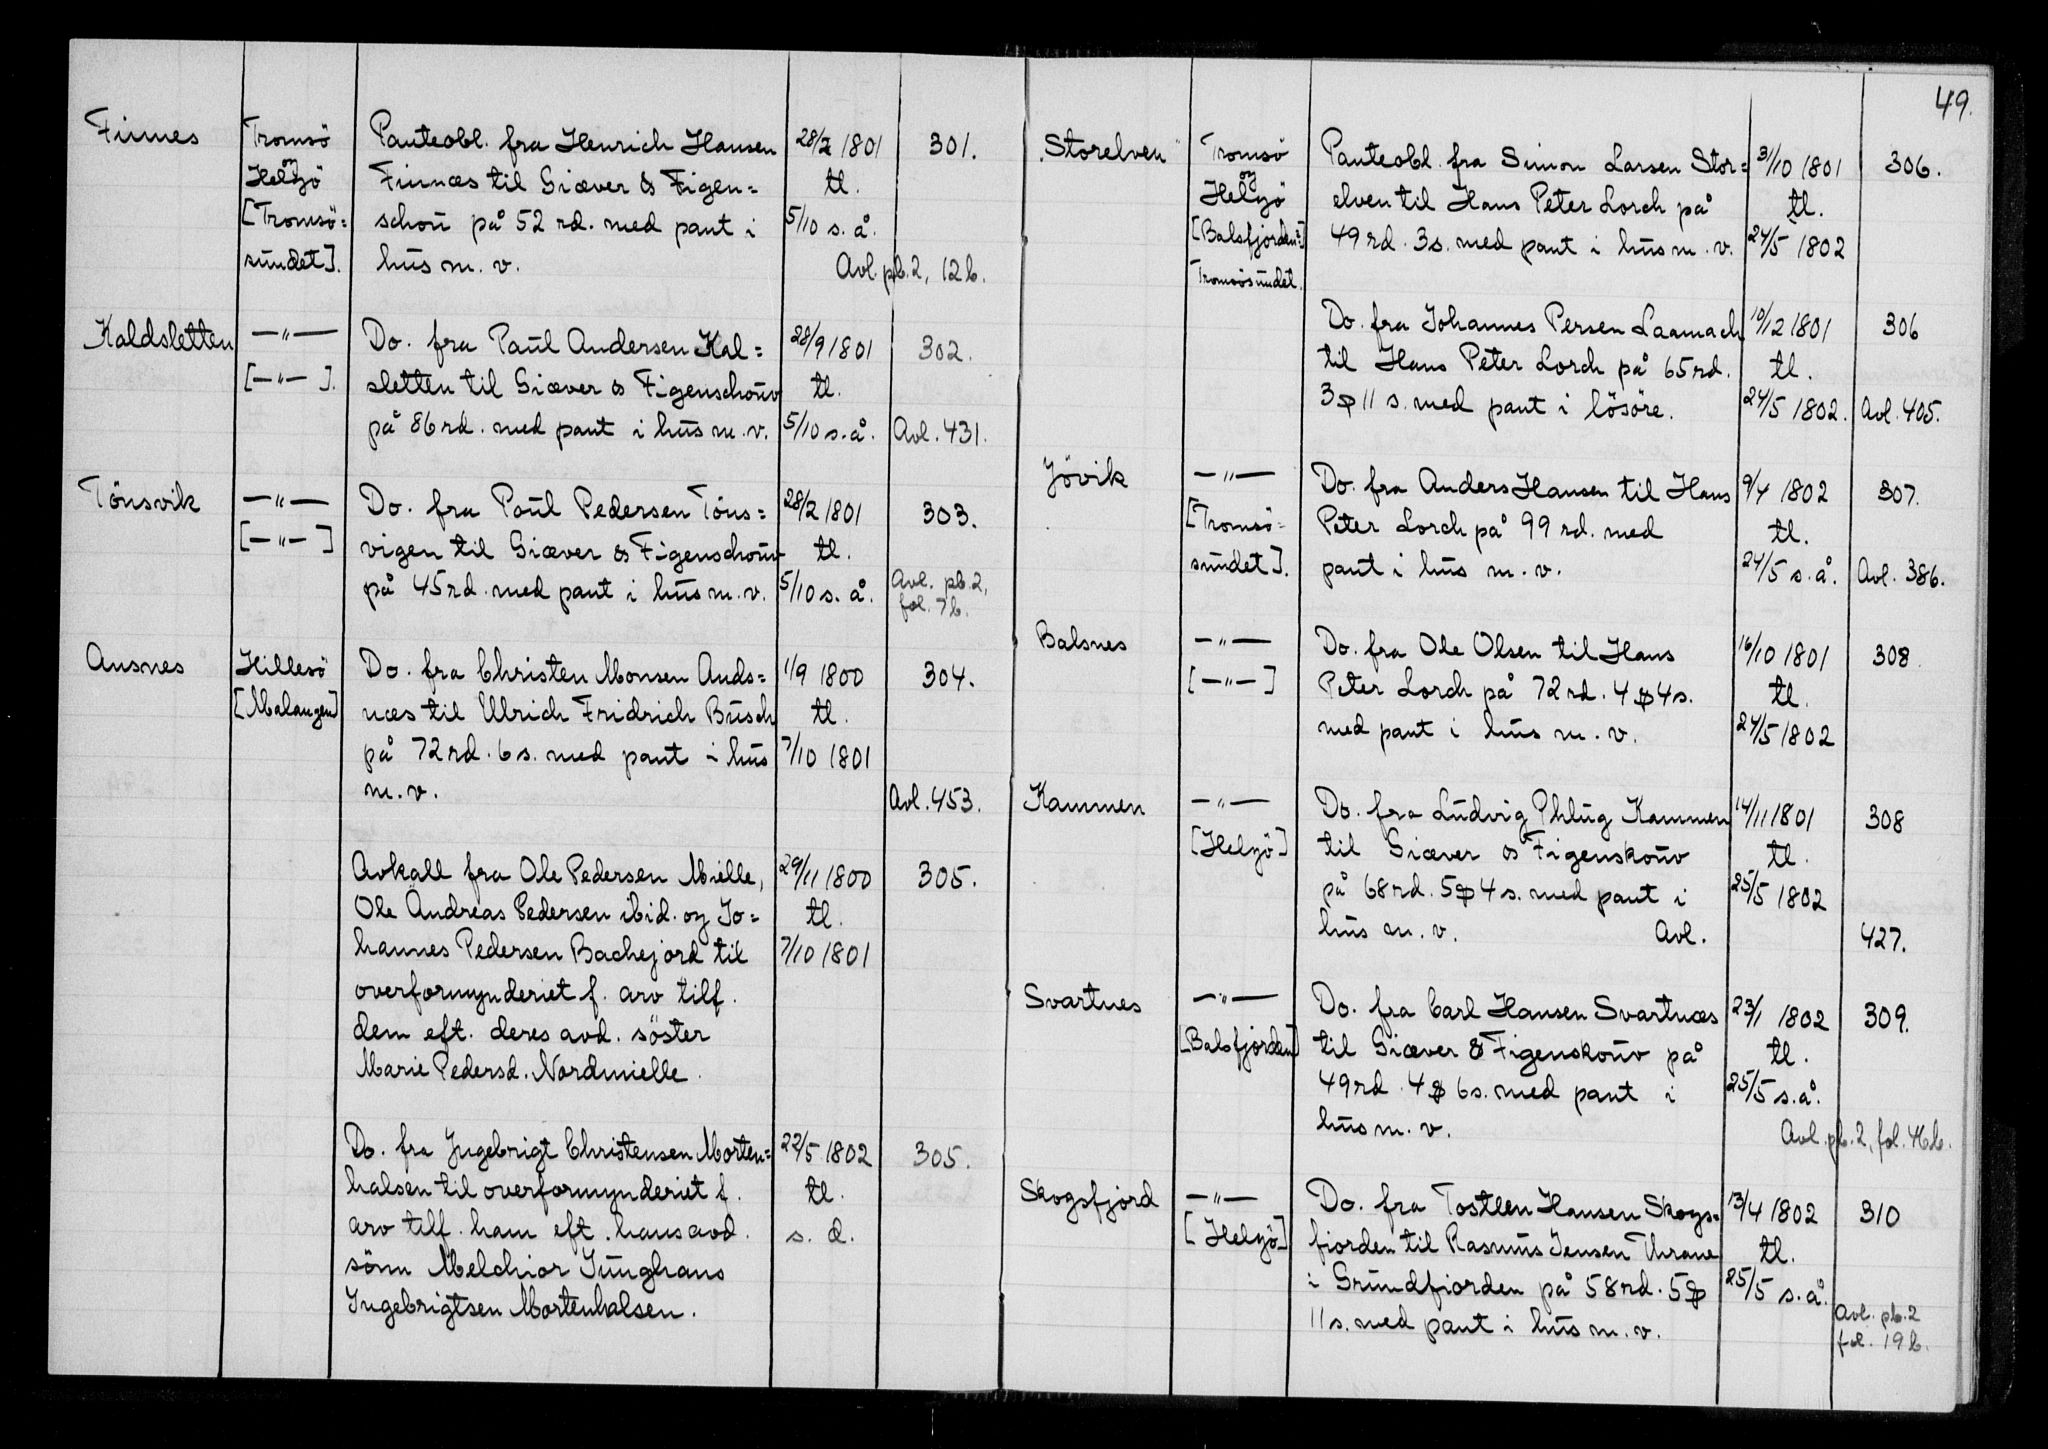 49.
Finnes Tromsö Panteobl. fra Henrich Hansen 28/2 1801 301.
og
Helgö Finnæs til Giæver & Figen= tl.
[Tromsö= schou på 52 rd. med pant i 5/10 s. å.
sundet]. hus m. v. Avl. pb. 2, 12 b.
Kaldsletten —"— Do. fra Paul Andersen Kal= 28/9 1801 302.
[—"—]. sletten til Giæver & Figenschouv tl.
på 86 rd. med pant i hus m. v. 5/10 s. å. Avl. 431.
Tönsvik —"— Do. fra Poul Pedersen Töns= 28/2 1801 303.
[—"—] vigen til Giæver & Figenschouv tl.
på 45 rd. med pant i hus m. v. 5/10 s. å. Avl. pb. 2,
fol. 7 b.
Ansnes Hillesö Do. fra Christen Monsen Ands= 1/9 1800 304.
[Malangen] næs til Ulrich Fridrich Busch tl.
på 72 rd. 6 s. med pant i hus 7/10 1801
m. v. Avl. 453.
Avkall fra Ole Pedersen Mielle, 29/11 1800 305.
Ole Andreas Pedersen ibid. og Jo= tl.
hannes Pedersen Bachejord til 7/10 1801
overformynderiet f. arv tilf.
dem eft. deres avd. söster
Marie Pedersd. Nordmielle.
Do. fra Jngebrigt Christensen Morten= 22/5 1802 305.
halsen til overformynderiet f. tl.
arv tilf. ham eft. hans avd. s. d.
sönn Melchior Junghans
Jngebrigtsen Mortenhalsen.
Storelven Tromsö Panteobl. fra Simon Larsen Stor= 31/10 1801 306.
og
Helgö elven til Hans Peter Lorch på tl.
[Balsfjorden=] 49 rd. 3 s. med pant i hus m. v. 24/5 1802
Tromsösundet.
Do. fra Johannes Persen Laamach 10/12 1801 306
til Hans Peter Lorch på 65 rd. tl.
3 ꝥ 11 s. med pant i lösöre. 24/5 1802. Avl. 405.
Jövik —"— Do. fra Anders Hansen til Hans 9/4 1802 307.
[Tromsö- Peter Lorch på 99 rd. med tl.
sundet]. pant i hus m. v. 24/5 s. å. Avl. 386.
Balsnes —"— Do. fra Ole Olsen til Hans 16/10 1801 308.
[—"—] Peter Lorch på 72 rd. 4 ꝥ 4 s. tl.
med pant i hus m. v. 24/5 1802
Kammen —"— Do. fra Ludvig Phlug Kammen 14/11 1801 308
[Helgö] til Giæver & Figenskouv tl.
på 68 rd. 5 ꝥ 4 s. med pant i 25/5 1802
hus m. v. Avl. 427.
Svartnes —"— Do. fra Carl Hansen Svartnæs 23/1 1802 309.
[Balsfjorden] til Giæver & Figenskouv på tl.
49 rd. 4 ꝥ 6 s. med pant i 25/5 s. å.
hus m. v. Avl. pb. 2, fol. 46 b.
Skogsfjord —"— Do. fra Tostlen Hansen Skogs= 13/4 1802 310
[Helgö] fiorden til Rasmus Jensen Thrane tl.
i Grundfiorden på 58 rd. 5 ꝥ 25/5 s. å.
11 s. med pant i hus m. v. Avl. pb. 2
fol. 19 b.